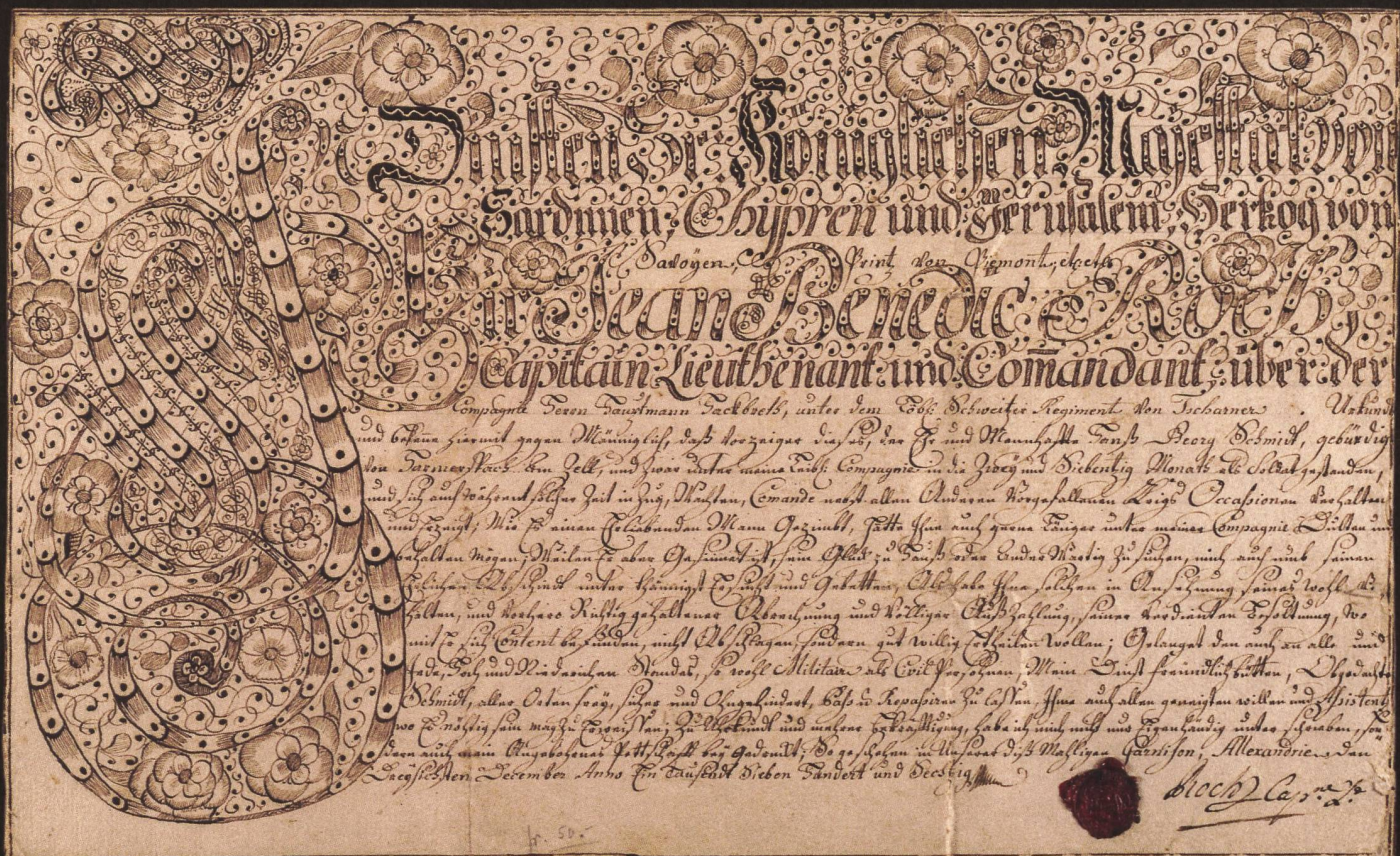 Diensten Sr. Königlichen Majestät von
Sardinien, Chypren und Jerusalem, Hertzog von
Savoyen, Printz von Piemont, etc. etc.
Ich Jean Benedict Roch,
Capitain Lieuthenant und Com̄andant, über der
Compagnie Heren Haubtmann Hackbreth, unter dem Lobl: Schweitzer Regiment von Tscharner. Urkund
und bekene hiermit gegen Männiglich, daß Vorzeiger dieses, der Ehr und Mannhaffte Hanß Georg Schmidt, gebürdig
von Harmerspach Am Zell, und zwar unter meine Leib: Compagnie in die Zwey und Siebentzig Monath als Soldat gestanden,
und sich auch während solcher Zeit in Zug, Wachten, Comando nebst allen Anderen Vorgefallenen Krigs Occassionen Verhalten
und Erzeigt, Wie Es einen Ehrliebenden Mann Gezimbt, hätte Ihne auch gerne länger unter meiner Compagnie Dulten und
behalten mögen, Weilen Er aber Gesinnet ist, sein Glück zu Hauß oder Anderwärtig zu suchen, mich auch umb seinen
Ehrlichen Abscheid unter thänigst Ersucht und Gebetten, Als habe Ihne solchen in Ansehung seines wohl ver
halten, und vorhero Richtig gehaltener Abrechnung und Völliger Auß Zahlung, seiner Verdienten Besoltung, wo
mit Er sich Content befunden, nicht Abschlagen, sondern gut willig Ertheilen wollen; Gelanget den auch an alle und
Jede, Hoch und Niederichen Standes, so wohl Militair als Civil Persohnen, Mein Dinst freundlich bitten, Obgedachten
Schmidt, aller Orten frey, sicher und Ohngehindert, Pass u Repasiren zu lassen, Ihme auch allen geneigten willen und Asistentz
wo Er nöhtig sein mag zu Erweissen, Zu Uhrkundt und mehrer Bekräfftigung, habe ich mich nicht nur Eigenhändig unter schrieben, son
dern auch mein Angebohrenes Pettschafft bey gedruckt, So geschehen in Unserer diß Mahligen Garnison, Allexandrie den
Dreysichsten December Anno Ein Tausendt Sieben Hundert und Sechzig
Roch Cap.ne Lt.
fr. 50.-